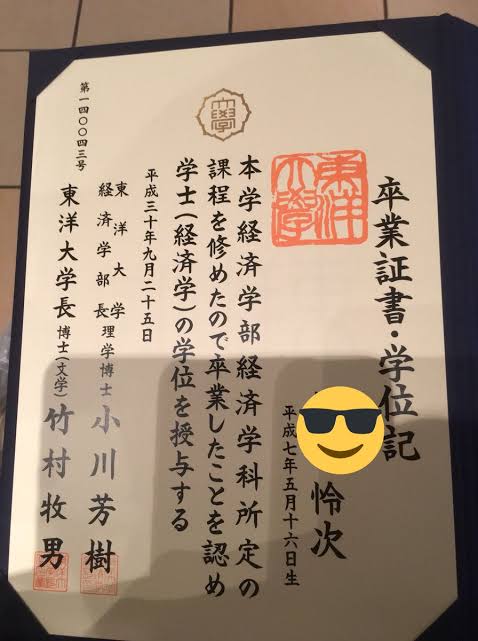 卒業証書・学位記
東洋
大学
怜次
平成七年五月十六日生
本学経済学部経済学科所定の
課程を修めたので卒業したことを認め
学士(経済学)の学位を授与する
平成三十年九月二十五日
東洋大学
経済学部長 理学博士 小川芳樹
東洋大学長 博士(文学) 竹村牧男
第一四〇〇四三号
大學